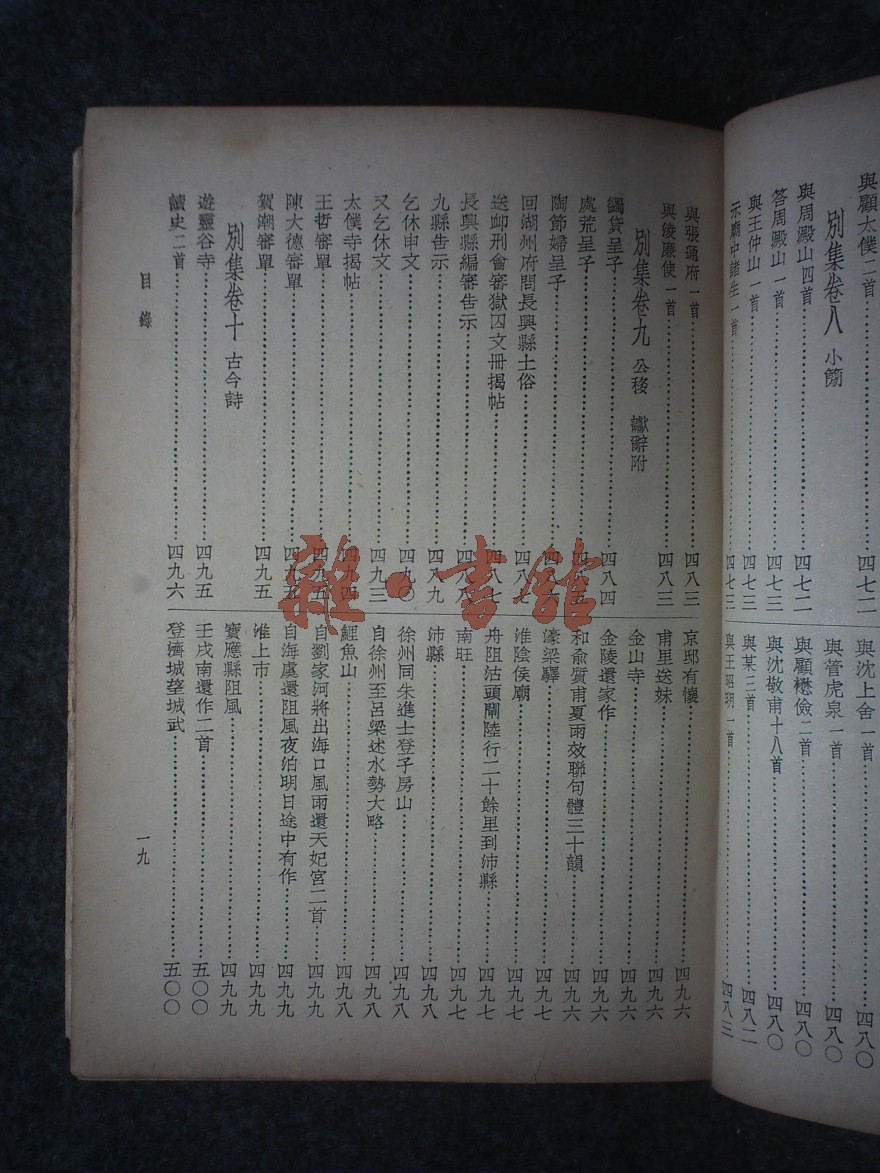 與顧太僕二首……四七二
別集卷八 小簡
與周澱山四首……四七二
答周澱山一首……四七三
與王仲山一首……四七三
示廟中諸生一首……四七三
與沈上舍一首……四八〇
與管虎泉一首……四八〇
與顧懋儉二首……四八〇
與沈敬甫十八首……四八〇
與某三首……四八二
與王昭明一首……四八三
與張通府一首……四八三
與綾廉使一首……四八三
別集卷九 公移 讞辭附
蠲貸呈子……四八四
處荒呈子……四八五
陶節婦呈子……四八六
回湖州府問長興縣土俗……四八七
送卹刑會審獄囚文冊揭帖……四八七
長興縣編審告示……四八八
九縣告示……四八九
乞休申文……四九〇
又乞休文……四九三
太僕寺揭帖……四九四
王哲審單……四九五
陳大德審單……四九五
賀潮審單……四九五
別集卷十 古今詩
遊靈谷寺……四九五
讀史二首……四九六
京邸有懷……四九六
甫里送妹……四九六
金山寺……四九六
金陵還家作……四九六
和俞質甫夏雨效聯句體三十韻……四九六
濠梁驛……四九七
淮陰侯廟……四九七
舟阻沽頭閘陸行二十餘里到沛縣……四九七
南旺……四九七
沛縣……四九八
徐州同朱進士登子房山……四九八
自徐州至呂梁述水勢大略……四九八
鯉魚山……四九八
自劉家河將出海口風雨還天妃宮二首……四九九
自海虞還阻風夜泊明日途中有作……四九九
淮上市……四九九
寶應縣阻風……四九九
壬戌南還作二首……五〇〇
登濟城望城武……五〇〇
目錄
一九
雜·書館